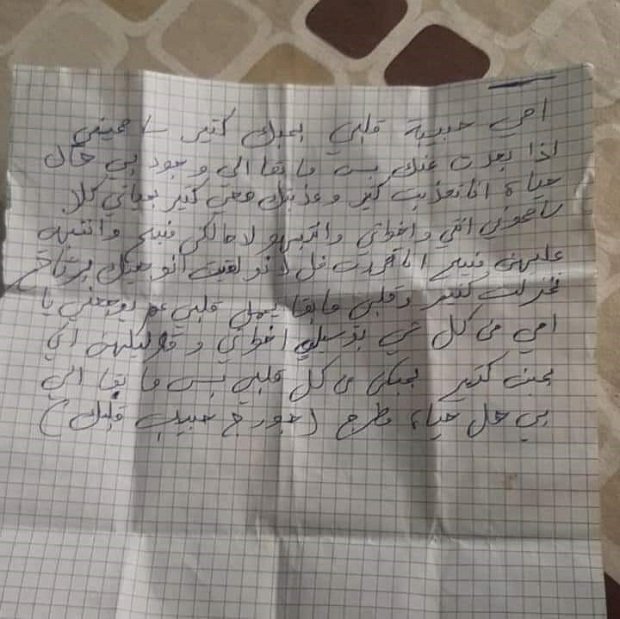 امي حبيبة قلبي بحبك كتير سامحيني
اذا بعدت عنك بس ما بقا الي وجود بي هال
حياة انا تعذبت كتير وعذبتك معي كتير بحياتي كلا
سامحوني امي واخواتي وانتبهو لا حالكن منيح وانتبه
عليهن منيح انا قررت فل لانو لقيت انو هيك برتاح
كتير وقلبي ما بقا يحمل قلبي عم يوجعني يا
امي من كل شي بوسيلي اخواتي وقوليلهن اني
بحبن كتير بحبكن من كل قلبي بس ما بقا الي
بي هل حياة مطرح (جورج حبيب قلبك)